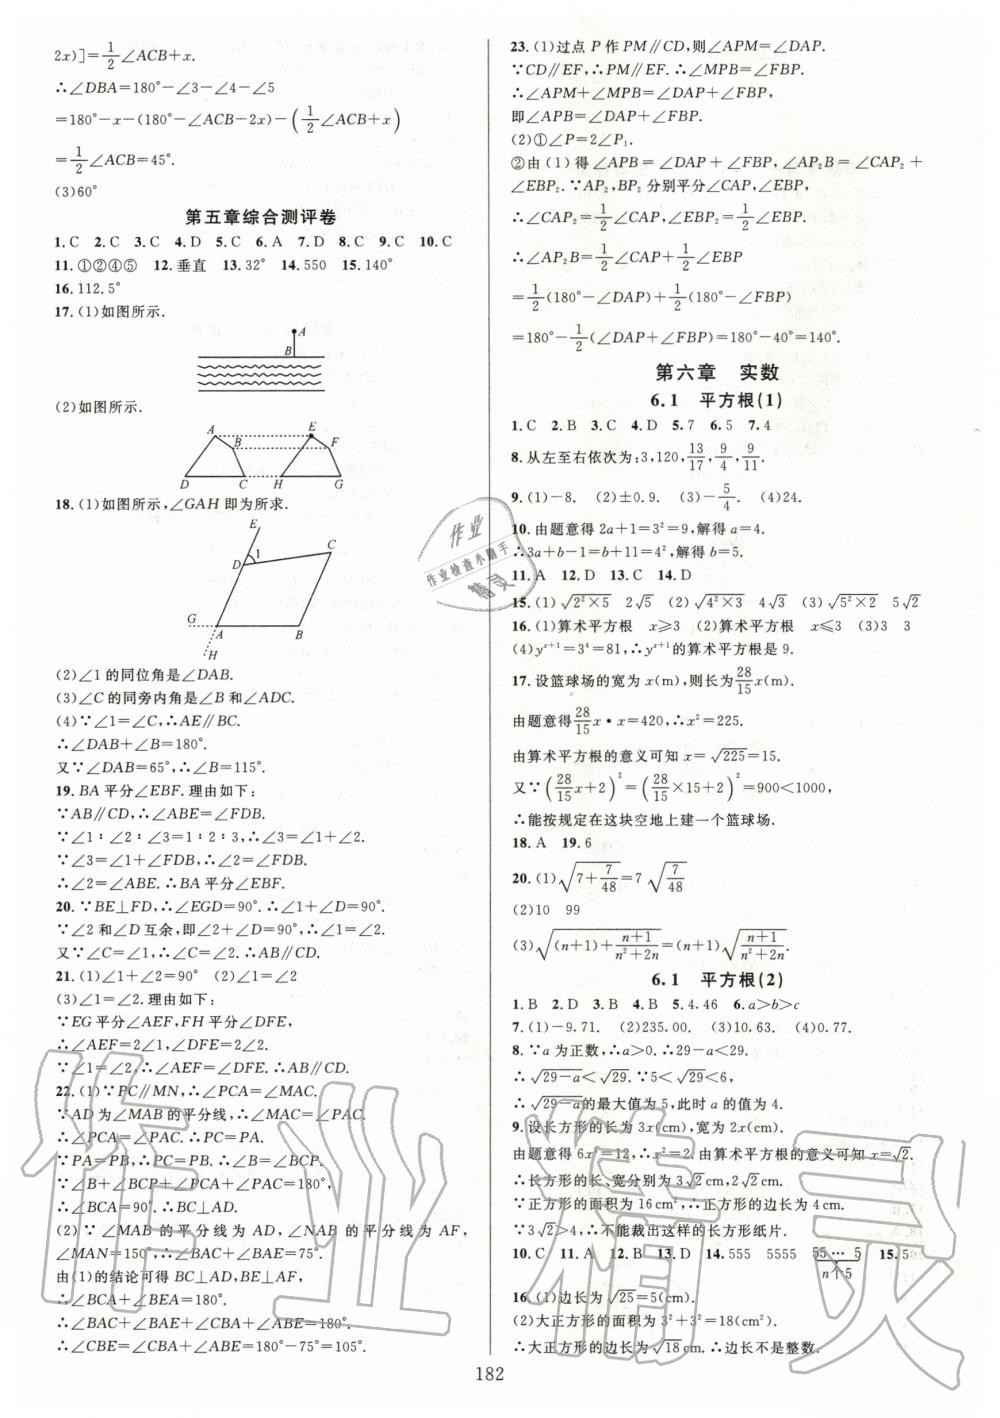 2x)]=1/2∠ACB+x.
∴∠DBA=180°−∠3−∠4−∠5
=180°−x−(180°−∠ACB−2x)−(1/2∠ACB+x)
=1/2∠ACB=45°.
(3)60°
第五章综合测评卷
1.C 2.C 3.C 4.D 5.C 6.A 7.D 8.C 9.C 10.C
11.①②④⑤ 12.垂直 13.32° 14.550 15.140°
16.112.5°
17.(1)如图所示.
A
B
(2)如图所示.
A B E F
D C H G
18.(1)如图所示,∠GAH 即为所求.
E
C
D 1
G
A B
H
(2)∠1的同位角是∠DAB.
(3)∠C的同旁内角是∠B和∠ADC.
(4)∵∠1=∠C,∴AE∥BC.
∴∠DAB+∠B=180°.
又∵∠DAB=65°,∴∠B=115°.
19.BA平分∠EBF.理由如下:
∵AB∥CD,∴∠ABE=∠FDB.
∵∠1∶∠2∶∠3=1∶2∶3,∴∠3=∠1+∠2.
∵∠3=∠1+∠FDB,∴∠2=∠FDB.
∴∠2=∠ABE.∴BA平分∠EBF.
20.∵BE⊥FD,∴∠EGD=90°.∴∠1+∠D=90°.
∵∠2和∠D互余,即∠2+∠D=90°.∴∠1=∠2.
又∵∠C=∠1,∴∠C=∠2.∴AB∥CD.
21.(1)∠1+∠2=90° (2)∠1=∠2
(3)∠1=∠2.理由如下:
∵EG平分∠AEF,FH平分∠DFE,
∴∠AEF=2∠1,∠DFE=2∠2.
∵∠1=∠2,∴∠AEF=∠DFE.∴AB∥CD.
22.(1)∵PC∥MN,∴∠PCA=∠MAC.
∵AD为∠MAB的平分线,∴∠MAC=∠PAC.
∴∠PCA=∠PAC.∴PC=PA.
∵PA=PB,∴PC=PB.∴∠B=∠BCP.
∵∠B+∠BCP+∠PCA+∠PAC=180°,
∴∠BCA=90°.∴BC⊥AD.
(2)∵∠MAB的平分线为AD,∠NAB的平分线为AF,
∠MAN=150°,∴∠BAC+∠BAE=75°.
由(1)的结论可得BC⊥AD,BE⊥AF,
∴∠BCA+∠BEA=180°.
∴∠BAC+∠BAE+∠CBA+∠ABE=180°.
∴∠CBE=∠CBA+∠ABE=180°−75°=105°.
23.(1)过点P作PM∥CD,则∠APM=∠DAP.
∵CD∥EF,∴PM∥EF.∴∠MPB=∠FBP.
∴∠APM+∠MPB=∠DAP+∠FBP,
即∠APB=∠DAP+∠FBP.
(2)①∠P=2∠P₁.
②由(1)得∠APB=∠DAP+∠FBP,∠AP₂B=∠CAP₂+
∠EBP₂.∵AP₂,BP₂分别平分∠CAP,∠EBP,
∴∠CAP₂=1/2∠CAP,∠EBP₂=1/2∠EBP.
∴∠AP₂B=1/2∠CAP+1/2∠EBP
=1/2(180°−∠DAP)+1/2(180°−∠FBP)
=180°−1/2(∠DAP+∠FBP)=180°−40°=140°.
第六章 实数
6.1 平方根(1)
1.C 2.B 3.C 4.D 5.7 6.5 7.4
8.从左至右依次为:3,120,13/17,9/4,9/11.
9.(1)−8. (2)±0.9. (3)−5/4. (4)24.
10.由题意得2a+1=3²=9,解得a=4.
∴3a+b−1=b+11=4²,解得b=5.
11.A 12.D 13.C 14.D
15.(1)√(2²×5) 2√5 (2)√(4²×3) 4√3 (3)√(5²×2) 5√2
16.(1)算术平方根 x⩾3 (2)算术平方根 x⩽3 (3)3 3
(4)yˣ⁺¹=3⁴=81,∴yˣ⁺¹的算术平方根是9.
17.设篮球场的宽为x(m),则长为28/15x(m).
由题意得28/15x•x=420,∴x²=225.
由算术平方根的意义可知x=√225=15.
又∵(28/15x+2)²=(28/15×15+2)²=900<1000,
∴能按规定在这块空地上建一个篮球场.
18.A 19.6
20.(1)√(7+7/48)=7√(7/48)
(2)10 99
(3)√((n+1)+(n+1)/(n²+2n))=(n+1)√((n+1)/(n²+2n)).
6.1 平方根(2)
1.B 2.D 3.B 4.B 5.4.46 6.a>b>c
7.(1)−9.71. (2)235.00. (3)10.63. (4)0.77.
8.∵a为正数,∴a>0.∴29−a<29.
∴√(29−a)<√29.∵5<√29<6,
∴√(29−a)的最大值为5,此时a的值为4.
9.设长方形的长为3x(cm),宽为2x(cm).
由题意得6x²=12,∴x²=2.由算术平方根的意义可知x=√2.
∴长方形的长、宽分别为3√2cm,2√2cm.
∵正方形的面积为16cm²,∴正方形的边长为4cm.
∵3√2>4,∴不能裁出这样的长方形纸片.
10.C 11.A 12.B 13.D 14.555 5555 55…5 15.5
n个5
16.(1)边长为√25=5(cm).
(2)大正方形的面积为3²+3²=18(cm²),
∴大正方形的边长为√18cm.∴边长不是整数.
182
作业
作业检查小助手
精灵
作业精灵